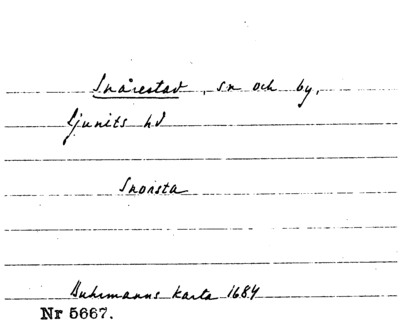 Snårestad, sn och by,
Ljunits hd
Snorsta
Buhrmanns karta 1684
Nr 5667.